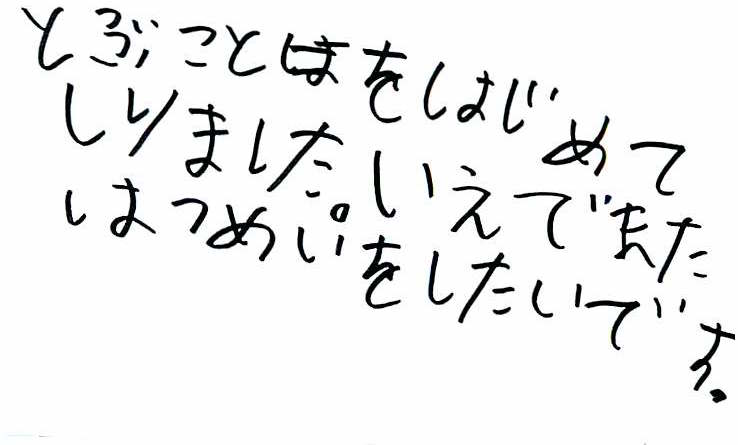 とぶことはをはじめて
しりました。いえでまた
はつめいをしたいです。